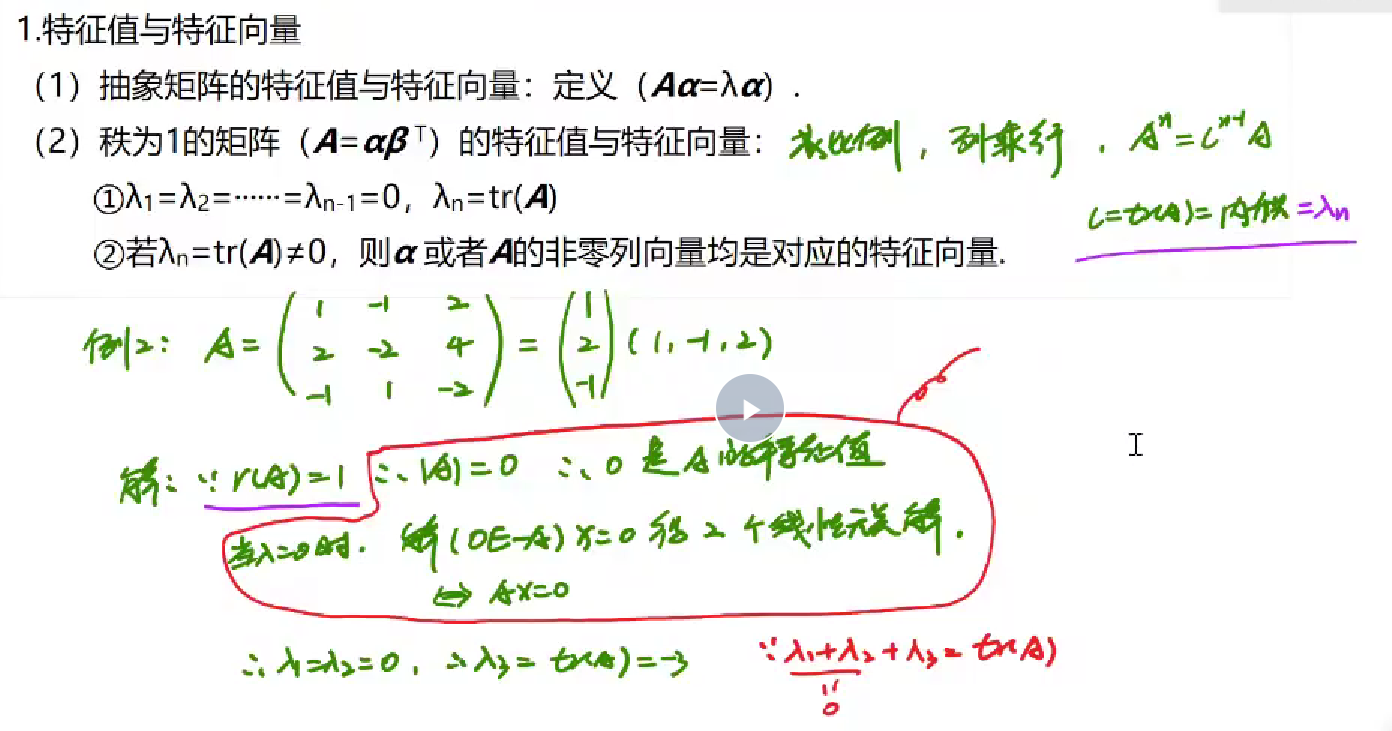 1.特征值与特征向量
（1）抽象矩阵的特征值与特征向量：定义（Aα=λα）.
（2）秩为1的矩阵（A=αβᵀ）的特征值与特征向量：成比例，列乘行．Aⁿ=Cⁿ⁻¹A
①λ₁=λ₂=······=λₙ₋₁=0，λₙ=tr(A)
C=tr(A)=内积=λₙ
②若λₙ=tr(A)≠0，则α或者A的非零列向量均是对应的特征向量.
例2：A=(1 -1 2
2 -2 4
-1 1 -2)=(1 2 -1)(1,-1,2)
解：∵r(A)=1 ∴|A|=0 ∴0是A的特征值
当λ=0时．解(0E-A)X=0得2个线性无关解．
⇔AX=0
∴λ₁=λ₂=0，∴λ₃=tr(A)=-3 ∵λ₁+λ₂+λ₃=tr(A)
=
0